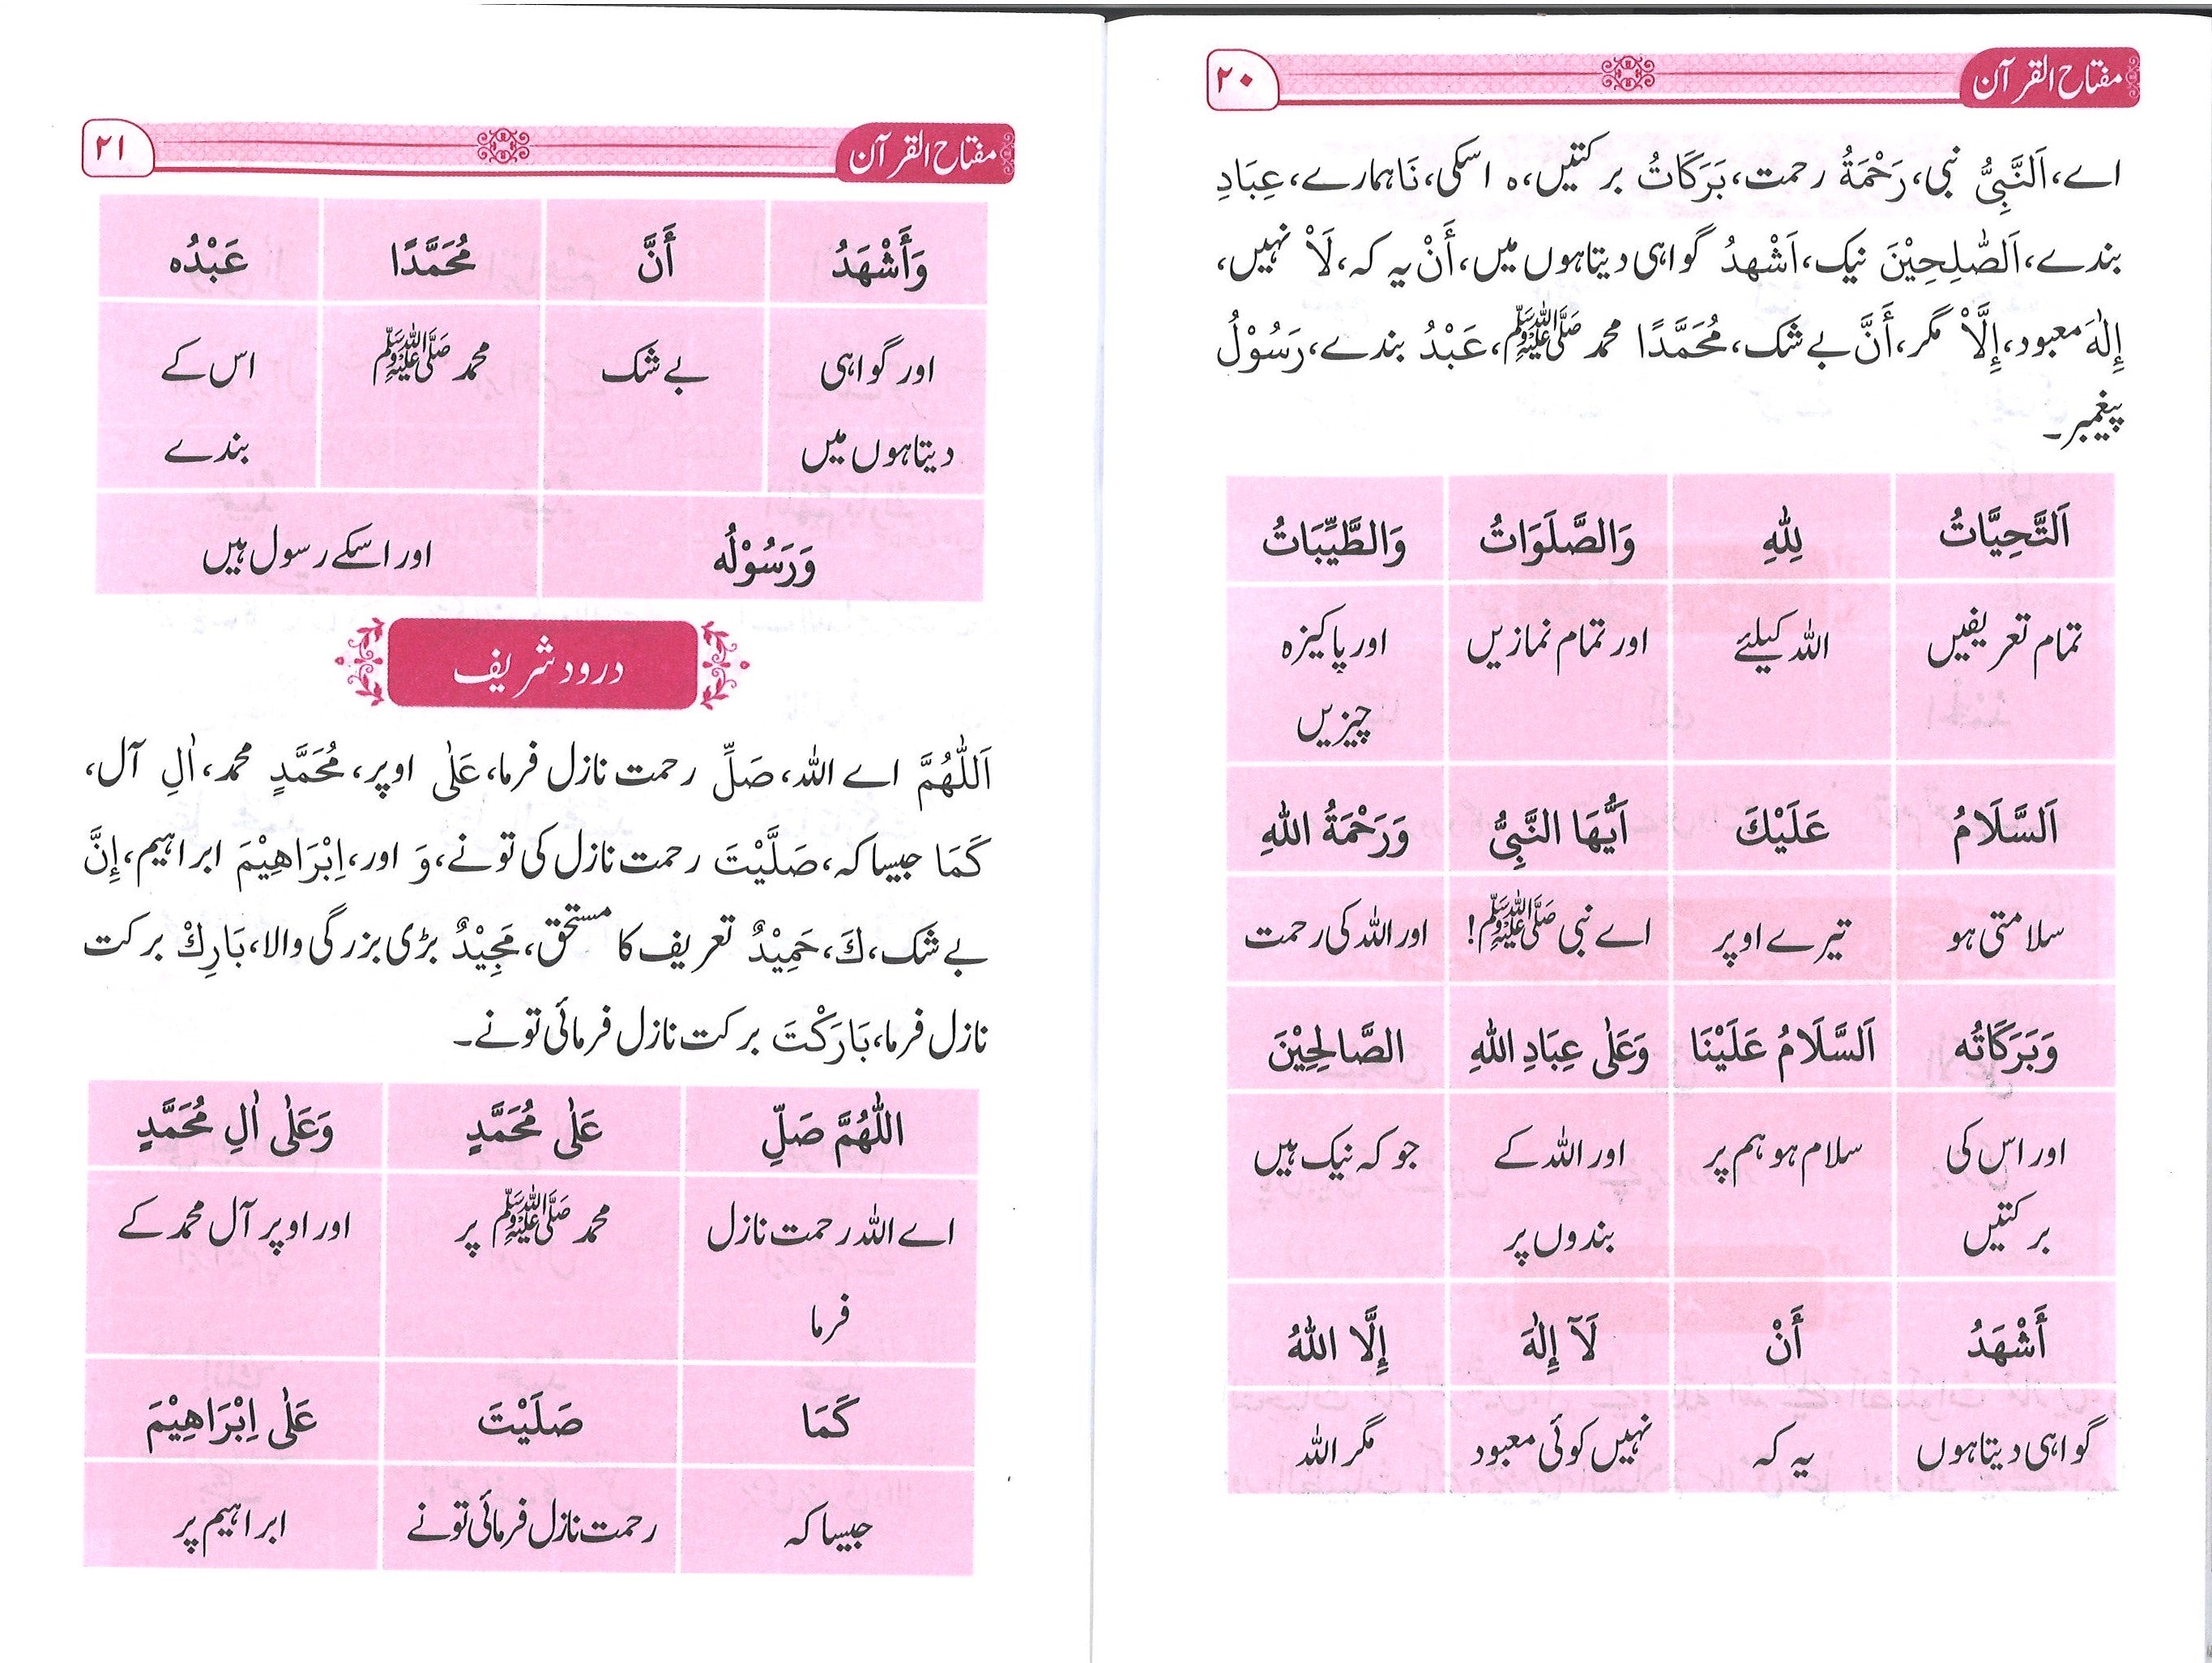 مفتاح القرآن ۲۰
اے، اَلنَّبِیُّ نبی، رَحْمَةُ رحمت، بَرَكَاتُ برکتیں، ہ اسکی، نَا ہمارے، عِبَادِ
بندے، اَلصّٰلِحِيْنَ نیک، اَشْهدُ گواہی دیتا ہوں میں، أَنْ یہ کہ، لَاْ نہیں،
إِلٰهَ معبود، إِلَّاْ مگر، أَنَّ بے شک، مُحَمَّدًا محمد ﷺ، عَبْدُ بندے، رَسُوْلُ
پیغمبر۔
اَلتَّحِيَّاتُ لِلّٰهِ وَالصَّلَوَاتُ وَالطَّيِّبَاتُ
تمام تعریفیں اللہ کیلئے اور تمام نمازیں اور پاکیزہ
چیزیں
اَلسَّلَامُ عَلَيْكَ اَيُّهَا النَّبِيُّ وَرَحْمَةُ اللّٰهِ
سلامتی ہو تیرے اوپر اے نبی ﷺ! اور اللہ کی رحمت
وَبَرَكَاتُه اَلسَّلَامُ عَلَيْنَا وَعَلٰى عِبَادِ اللّٰهِ الصَّالِحِيْنَ
اور اس کی سلام ہو ہم پر اور اللہ کے جو کہ نیک ہیں
برکتیں بندوں پر
أَشْهَدُ أَنْ لَآ إِلٰهَ إِلَّا اللّٰهُ
گواہی دیتا ہوں یہ کہ نہیں کوئی معبود مگر اللہ
مفتاح القرآن ۲۱
وَأَشْهَدُ أَنَّ مُحَمَّدًا عَبْدُه
اور گواہی بے شک محمد ﷺ اس کے
دیتا ہوں میں بندے
وَرَسُوْلُه اور اسکے رسول ہیں
درود شریف
اَللّٰهُمَّ اے اللہ، صَلِّ رحمت نازل فرما، عَلٰى اوپر، مُحَمَّدٍ محمد، اٰلِ آل،
كَمَا جیسا کہ، صَلَّيْتَ رحمت نازل کی تو نے، وَ اور، اِبْرَاهِيْمَ ابراہیم، إِنَّ
بے شک، كَ، حَمِيْدٌ تعریف کا مستحق، مَجِيْدٌ بڑی بزرگی والا، بَارِكْ برکت
نازل فرما، بَارَكْتَ برکت نازل فرمائی تو نے۔
اللّٰهُمَّ صَلِّ عَلٰى مُحَمَّدٍ وَعَلٰى اٰلِ مُحَمَّدٍ
اے اللہ رحمت نازل محمد ﷺ پر اور اوپر آل محمد کے
فرما
كَمَا صَلَيْتَ عَلٰى اِبْرَاهِيْمَ
جیسا کہ رحمت نازل فرمائی تو نے ابراہیم پر